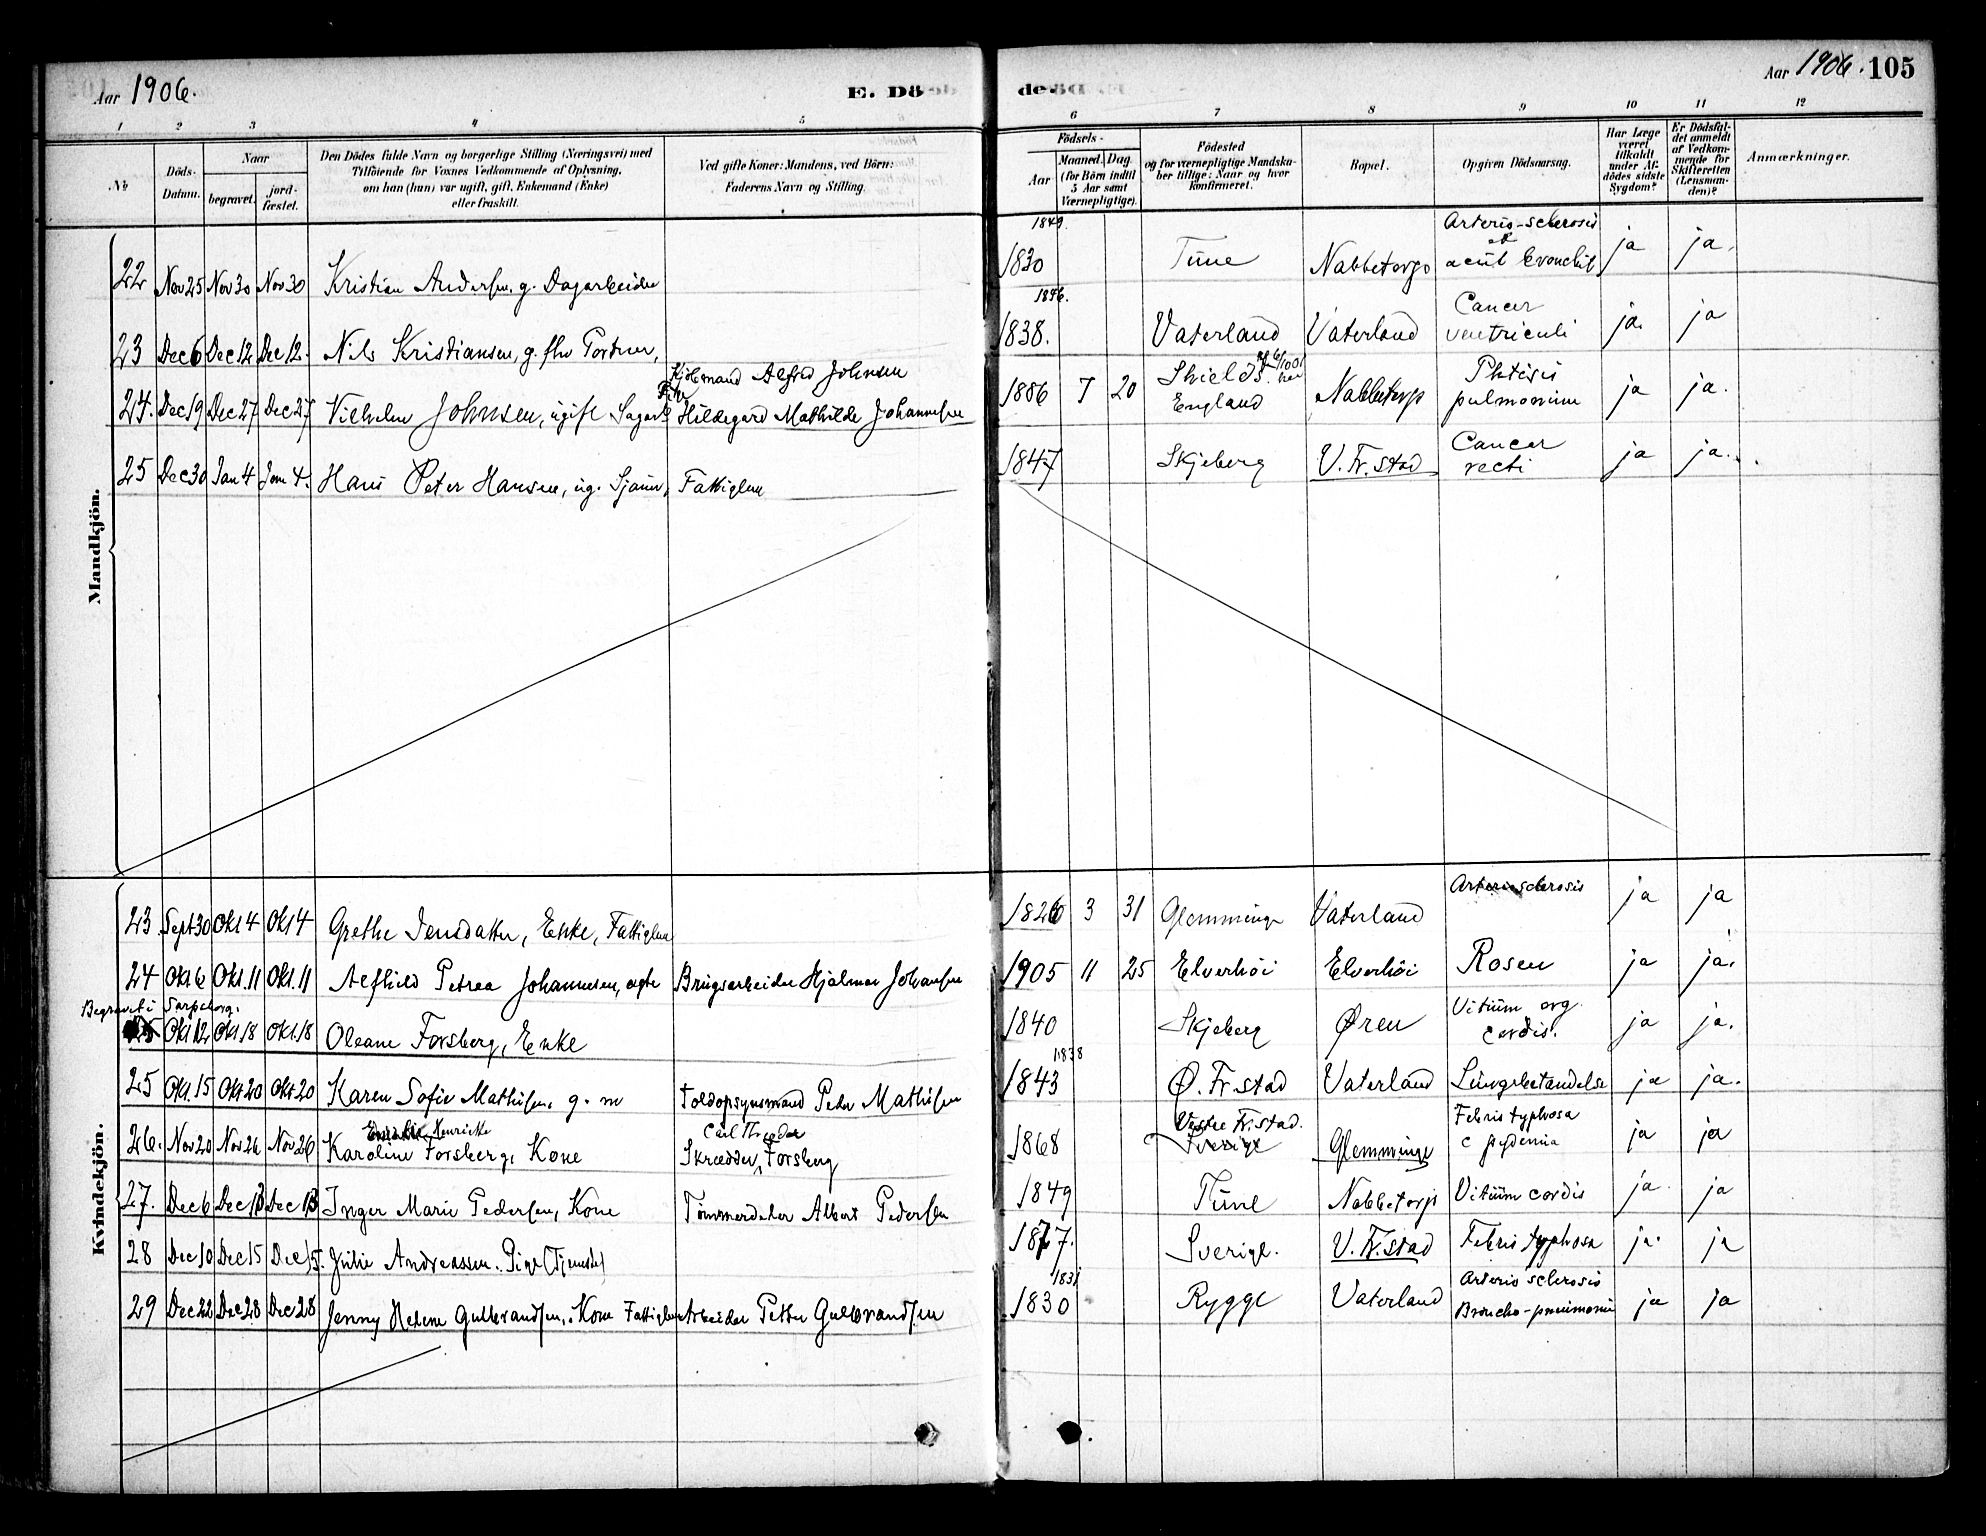 Aar 1906.
E. Dö
de.
Aar 1906. 105
1 2 3 4 5 6 7 8 9 10 11 12
No
Döds-Datum.
Naar
begravet.
jord-fæstet.
Den Dödes fulde Navn og borgerlige Stilling (Næringsvei) med
Tilföiende for Voxnes Vedkommende af Oplysning,
om han (hun) var ugift, gift, Enkemand (Enke)
eller fraskilt.
Ved gifte Koner: Mandens, ved Börn:
Faderens Navn og Stilling.
Födsels-
Aar
Maaned. Dag.
(for Börn indtil
5 Aar samt
Værnepligtige).
Födested
og for værnepligtige Mandska-
ber tillige: Naar og hvor
konfirmeret.
Bopæl.
Opgiven Dödsaarsag.
Har Læge
været
tilkaldt
under Af-
dödes sidste
Sygdom?
Er Dödsfal-
det anmeldt
af Vedkom-
mende for
Skifteretten
(Lensman-
den)?
Anmærkninger.
Mandkjön.
1849.
22 Nov 25 Nov 30 Nov 30 Kristian Andersen, g. Dagarbeider 1830 Tune Nabbetorp Arterio-sclerosis et acut bronchit ja ja.
1846.
23 Dec 6 Dec 12 Dec 12. Nils Kristiansen, g. fhv Portner, 1838. Vaterland Vaterland Cancer ventriculi ja. ja
24. Dec 19 Dec 27 Dec 27 Vilhelm Johnsen, ugift Sagarb Alfred Johnsen Hildegard Mathilde Johannesen 1886 7 20 Shields England Nabbetorp Phtisis pulmonum ja ja.
25 Dec 30 Jan 4 Jan 4. Hans Peter Hansen, ug. Sjauer, Fattiglem 1847 Skjeberg V. Fr.stad Cancer recti ja ja.
Kvindekjön.
23 Sept 30 Okt 4 Okt 4 Grethe Jensdatter, Enke, Fattiglem 1826 3 31 Glemminge Vaterland Arteriosclerosis ja ja
24 Okt 6 Okt. 11 Okt. 11 Alfhild Petrea Johannesen, ægte Brugsarbeider Hjalmar Johansen 1905 11 25 Elverhöi Elverhöi Rosen ja ja.
Begravet i Sarpsborg.
25 Okt 12 Okt. 18 Okt. 18 Oleane Forsberg, Enke 1840 Skjeberg Øren Vitium org. cordis. ja ja.
1838
25 Okt. 15 Okt 20 Okt 20 Karen Sofie Mathisen, g. m Toldopsynsmand Peder Mathisen 1843 Ø. Fr.stad Vaterland Lungebetændelse ja ja.
Henrikke
Carl Theodor
Vestre Fr.stad.
26. Nov 20 Nov 26 Nov 26 Karoline Forsberg, Kone Skrædder, Forsberg 1868 Sverige Glemminge Febris typhosa c pyæmia ja ja
27. Dec 6 Dec 13 Dec 13 Inger Marie Pedersen, Kone Tömmerdeler Albert Pedersen 1849 Tune Nabbetorp Vitium cordis ja ja
28 Dec 10 Dec 15 Dec 15. Julie Andreassen. Pige (Tjeneste) 1877. Sverige. V. Fr.stad Febris typhosa ja. ja
1831
29 Dec 22 Dec 28 Dec 28 Jenny Helene Gulbrandsen, Kone Fattiglem Arbeider Petter Gulbrandsen 1830 Rygge Vaterland Arterio sclerosis Broncho-pneumoni ja ja